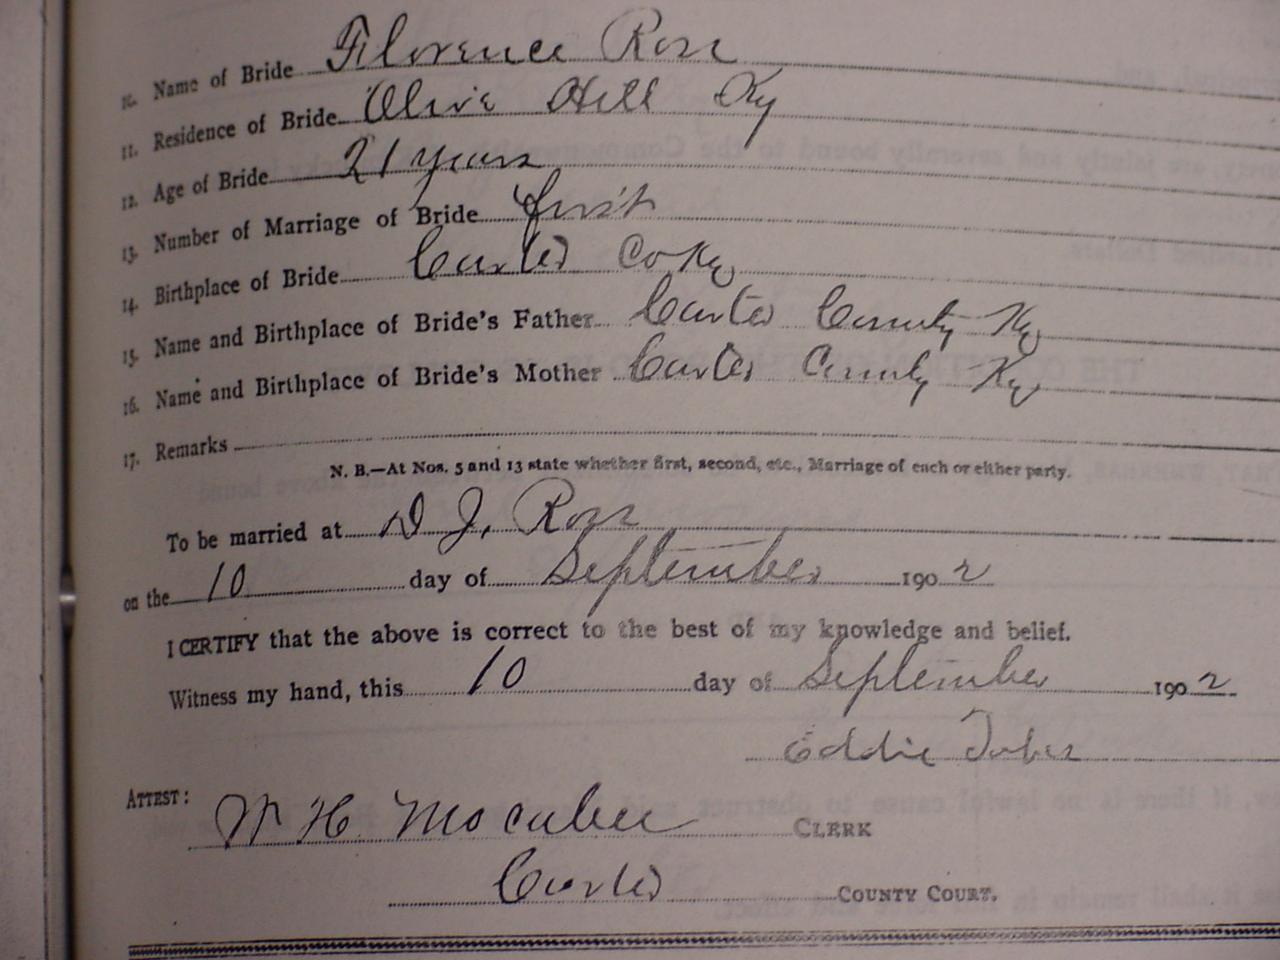 10. Name of Bride Florence Rose
11. Residence of Bride Olive Hill Ky
12. Age of Bride 21 years
13. Number of Marriage of Bride first
14. Birthplace of Bride Carter Co Ky
15. Name and Birthplace of Bride's Father Carter County Ky
16. Name and Birthplace of Bride's Mother Carter County Ky
17. Remarks
N. B.—At Nos. 5 and 13 state whether first, second, etc., Marriage of each or either party.
To be married at D J. Rose
on the 10 day of September 1902
I CERTIFY that the above is correct to the best of my knowledge and belief.
Witness my hand, this 10 day of September 1902
Eddie
ATTEST:
W H CLERK
Carter COUNTY COURT.